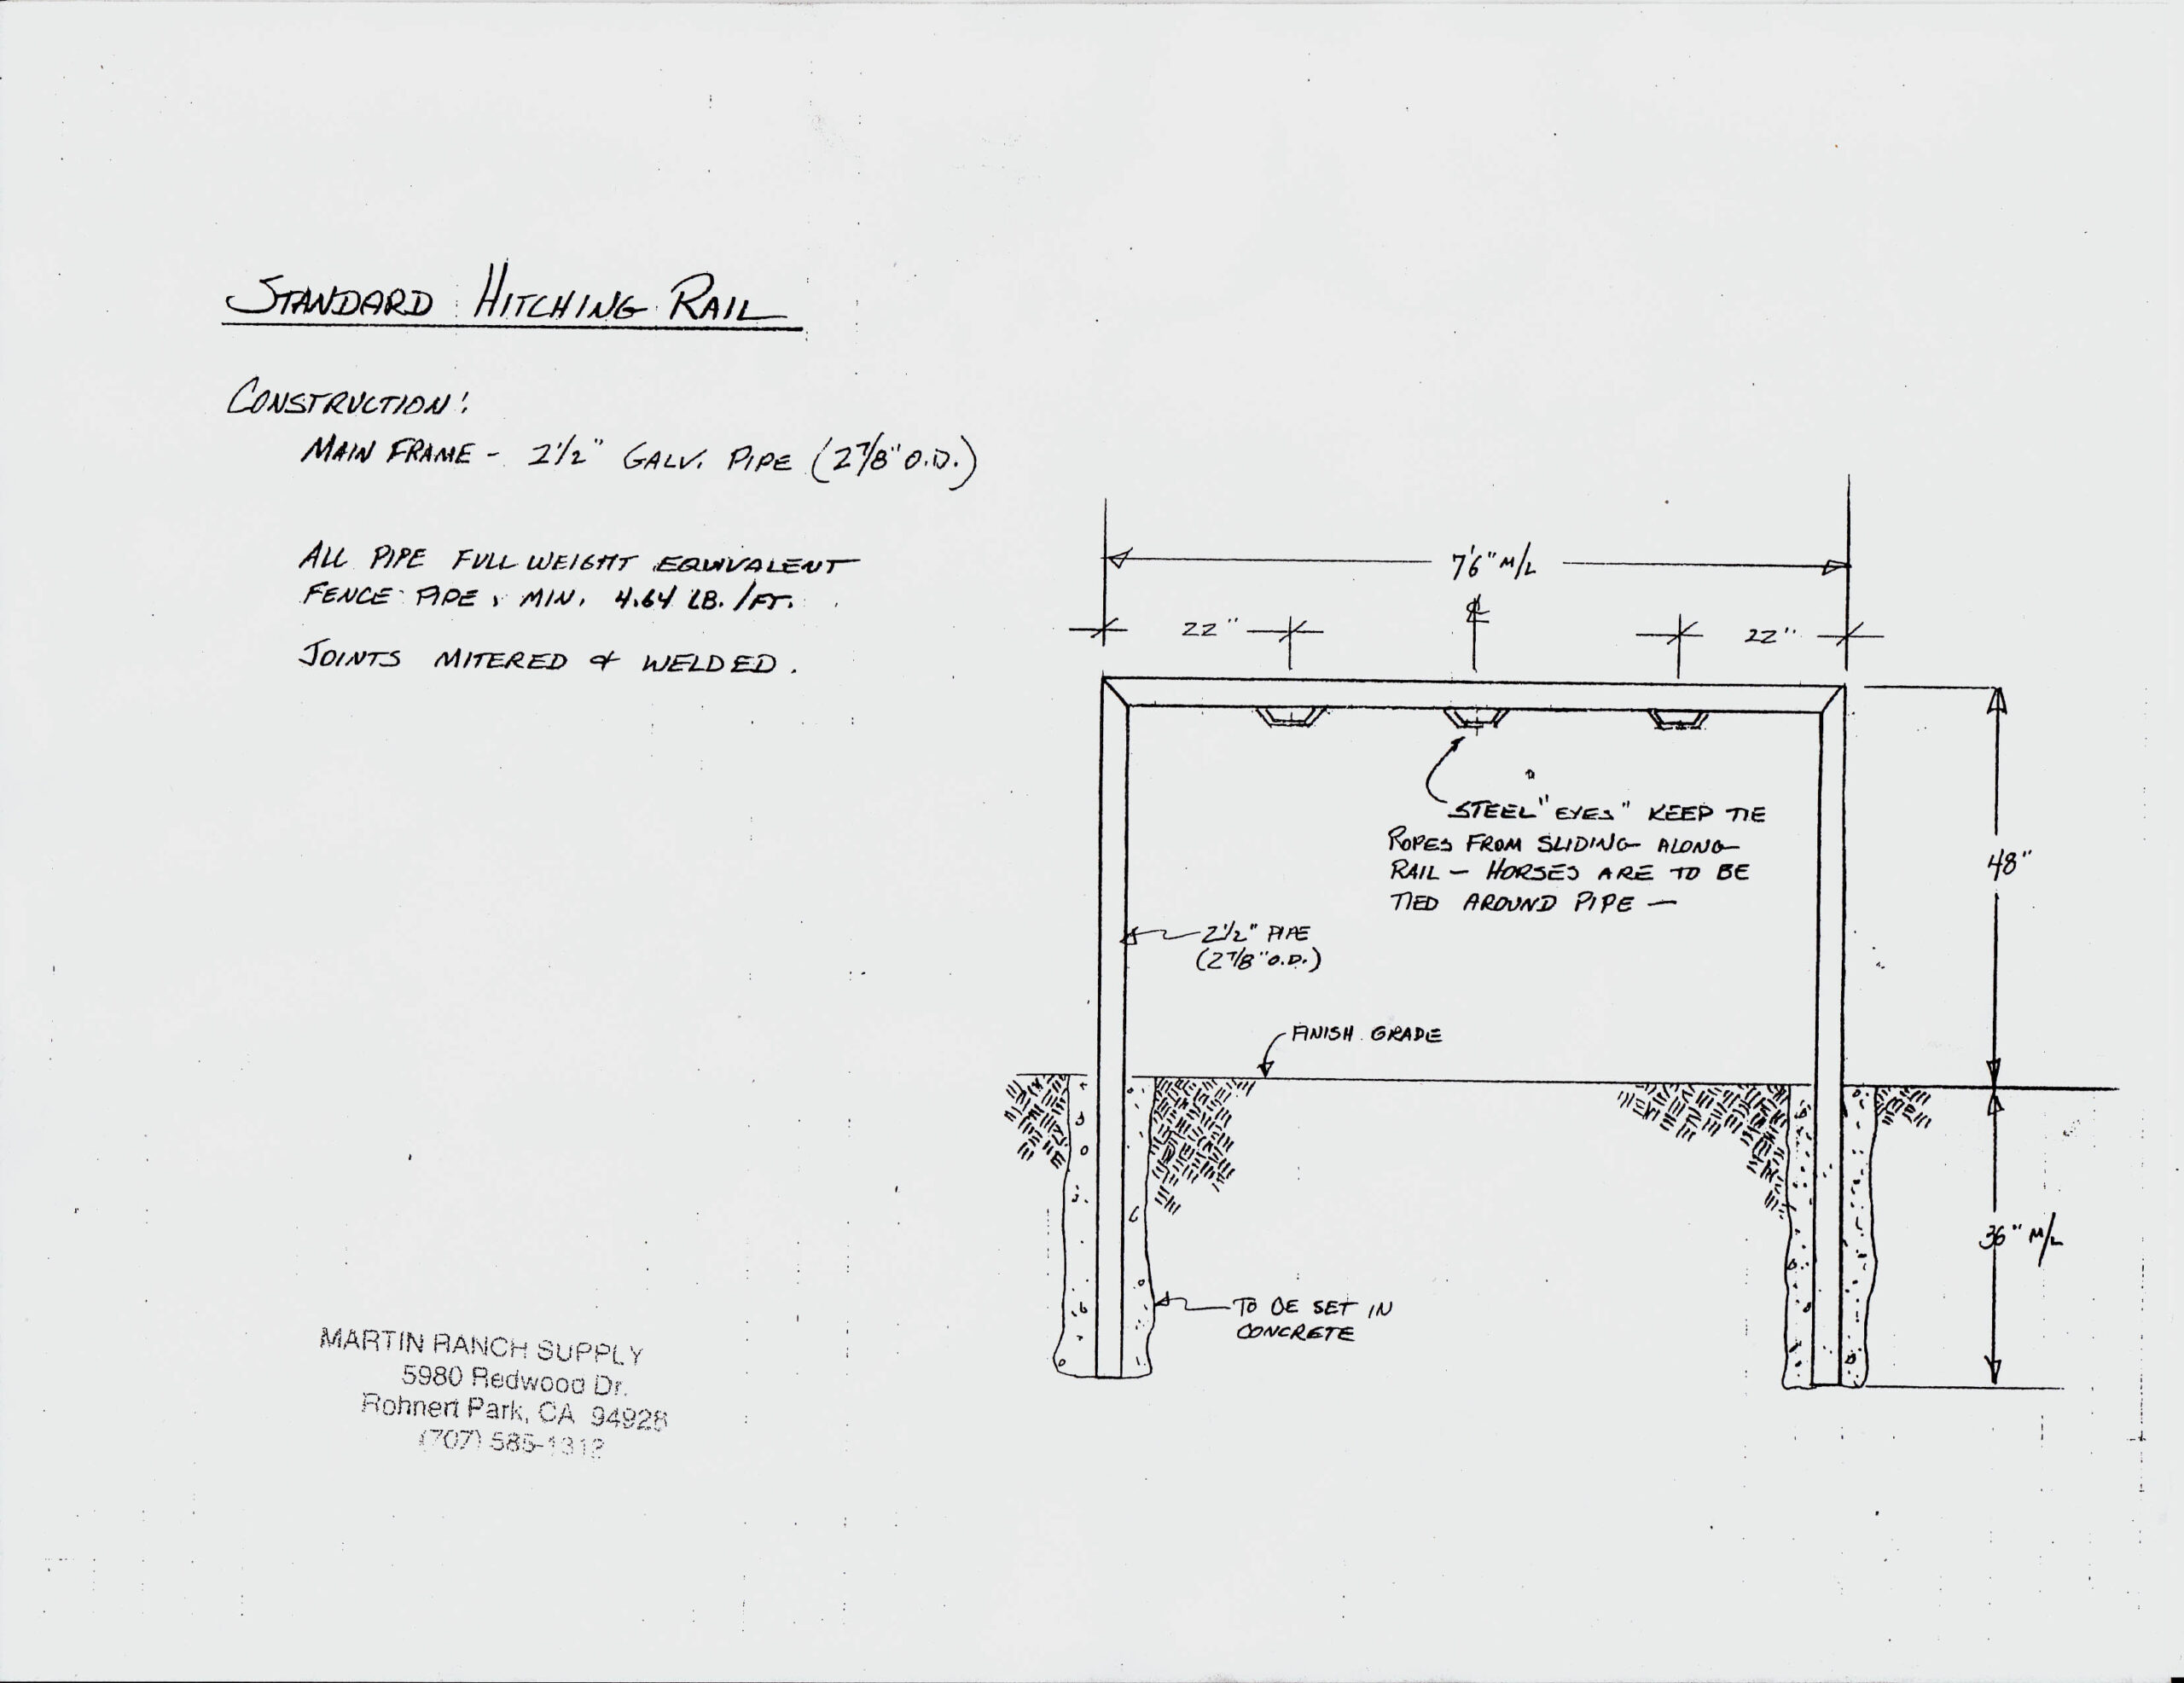 STANDARD HITCHING RAIL
CONSTRUCTION:
MAIN FRAME - 2 1/2" GALV. PIPE (2 7/8" O.D.)
ALL PIPE FULL WEIGHT EQUIVALENT
FENCE PIPE, MIN. 4.64 LB./FT.
JOINTS MITERED & WELDED.
7'6" M/L
22"
℄
22"
STEEL "EYES" KEEP TIE
ROPES FROM SLIDING ALONG
RAIL — HORSES ARE TO BE
TIED AROUND PIPE —
48"
2 1/2" PIPE
(2 7/8" O.D.)
FINISH GRADE
36" M/L
TO BE SET IN
CONCRETE
MARTIN RANCH SUPPLY
5980 Redwood Dr.
Rohnert Park, CA 94928
(707) 585-1313